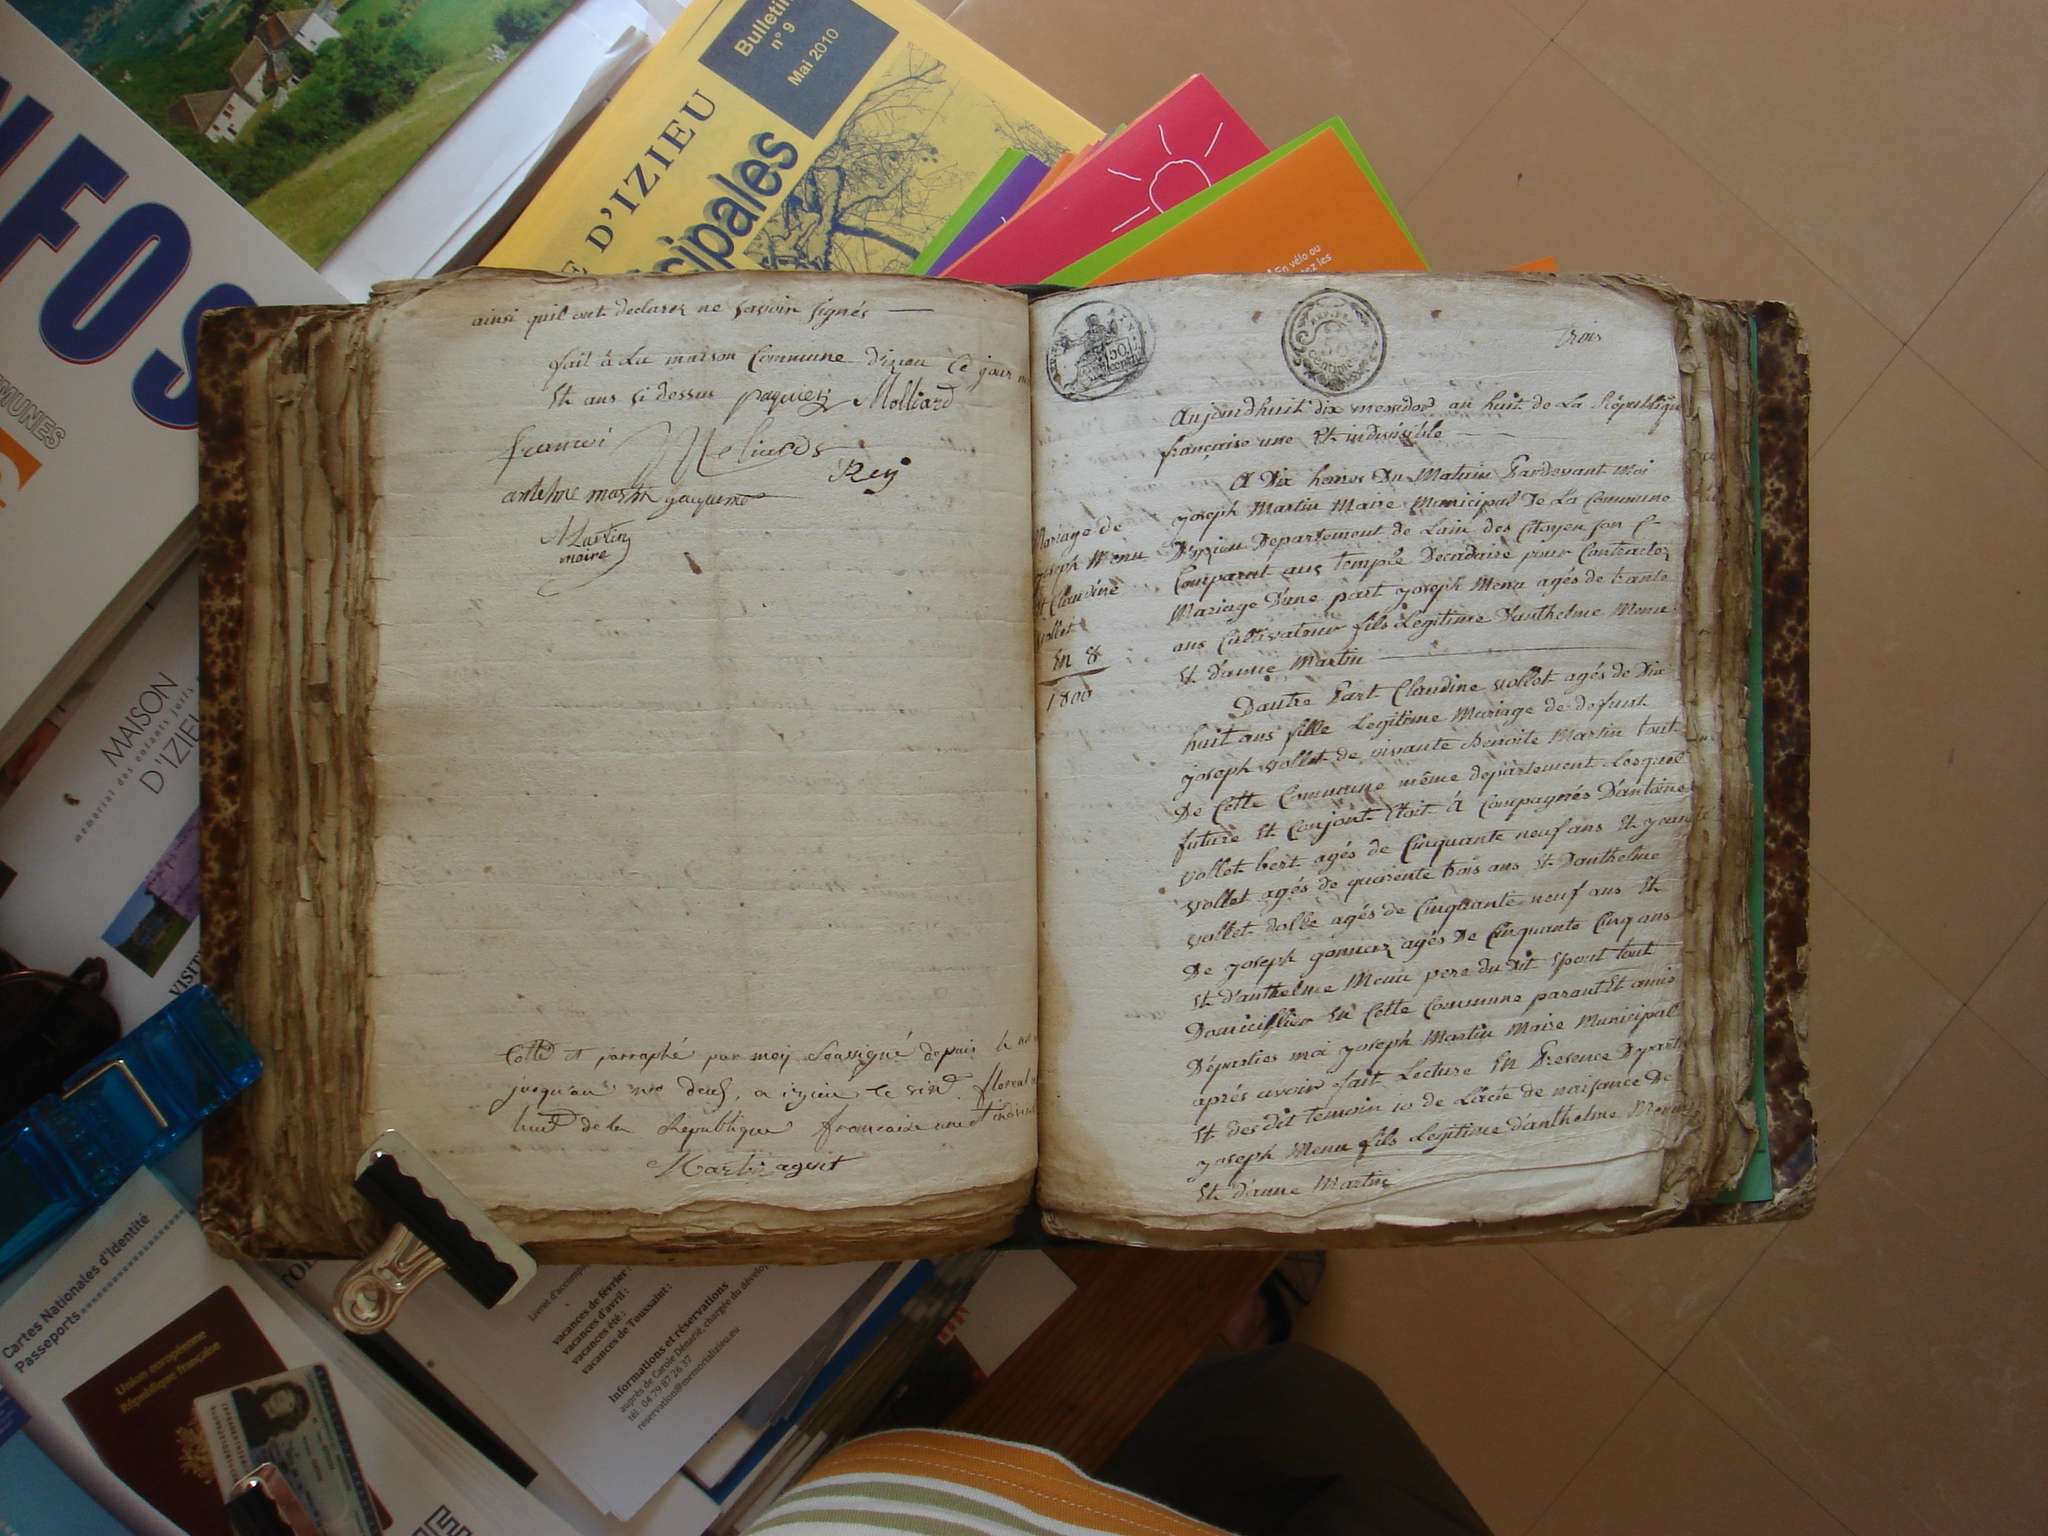 NFOS
MUNES
Bulletin
n° 9
Mai 2010
E D'IZIEU
cipales
En vélo ou
tez les
MAISON
D'IZIEU
memorial des enfants juifs
VISIT
ainsi quil ont declarer ne savoir signés
fait à la maison Commune d'izieu Ce jour
Et ans si dessus paquiez Molliard
francoi
Rey
antelme martin
Martin
maire
Cotté et parraphé par moy Soussigné depuis le
jusqu'au deux, a izieu le vint floreal
huit de la Republique francaise une et indivis
Martin agent
50
REP. FRA.
50
centime
trois
Aujourdhuit dix messidor an huit de La Républiqu
française une Et indivisible
A Dix heures Du Matin Pardevant Moi
joseph Martin Maire Municipal De La Commune
D'izieu Departement de Lain des Citoyen son C-
Comparut aus temple Decadaire pour Contracter
Mariage D'une part joseph Menu agés de trante
ans Cultivateur fils Legitime D'anthelme Menu
Et D'anne Martin
Mariage de
joseph Menu
Et Claudine
vollet
En 8
1800
Dautre Part Claudine vollet agés de Dix
huit ans fille Legitime Mariage de defunt
joseph vollet de vivante Benoite Martin tout
De Cette Commune même departement lesquel
future Et Conjont Etoit á Compagnés D'antoine
vollet bert agés de Cinquante neuf ans Et
vollet agés de quarente trois ans Et Danthelme
vollet dolle agés de Cinquante neuf ans Et
De joseph agés De Cinquante Cinq ans
Et d'anthelme Menu pere du Dit Epout tout
Domicillier En Cette Commune parant Et amis
Départies moi joseph Martin Maire Municipal
aprés avoir fait Lecture En Presence Dparti
Et des dit temoin 10 de Lacte de naisance De
joseph Menu fils Legitime d'anthelme Menu
Et d'anne Martin
Cartes Nationales d'Identité
Passeports
Union européenne
République française
Livret d'accomp
vacances de février :
vacances d'avril :
vacances été :
vacances de Toussaint :
Informations et réservations
auprès de Carole Dénarié, chargée du dévelop
tél : 04 79 87 26 37
reservation@memorializieu.eu